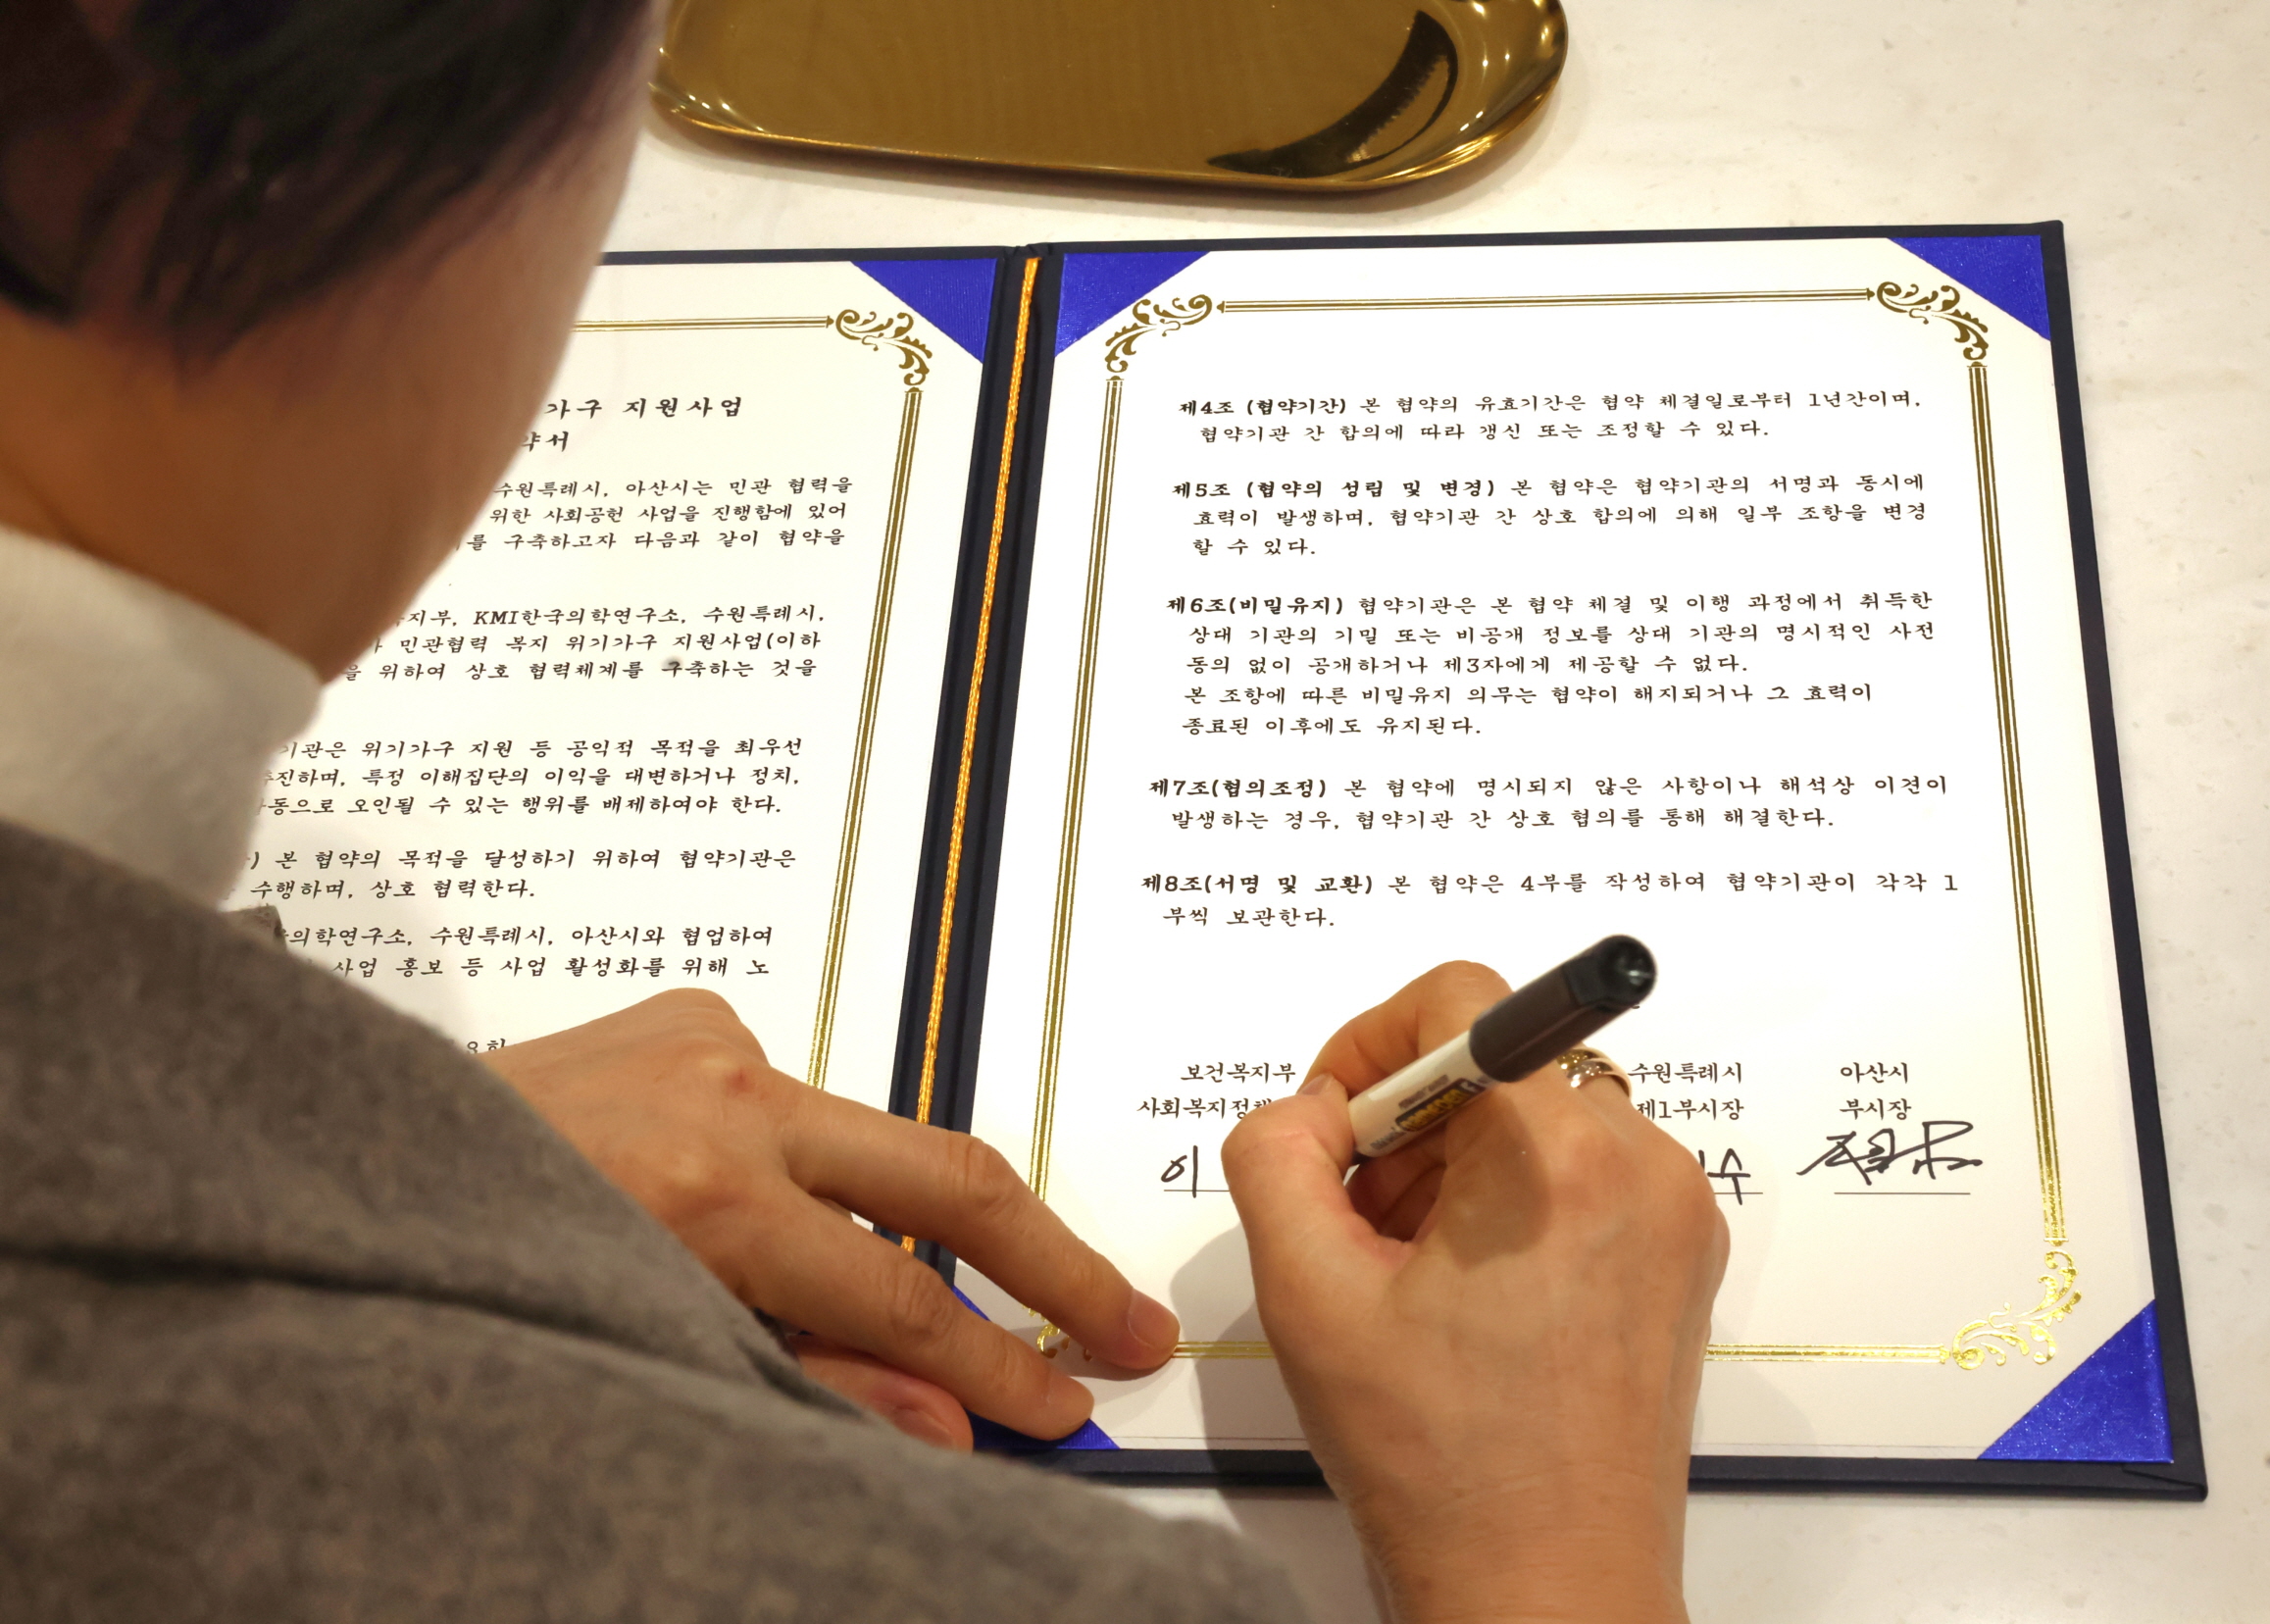 가구 지원사업
약서
수원특례시, 아산시는 민관 협력을
위한 사회공헌 사업을 진행함에 있어
를 구축하고자 다음과 같이 협약을
지부, KMI한국의학연구소, 수원특례시,
민관협력 복지 위기가구 지원사업(이하
을 위하여 상호 협력체계를 구축하는 것을
기관은 위기가구 지원 등 공익적 목적을 최우선
추진하며, 특정 이해집단의 이익을 대변하거나 정치,
동으로 오인될 수 있는 행위를 배제하여야 한다.
) 본 협약의 목적을 달성하기 위하여 협약기관은
수행하며, 상호 협력한다.
의학연구소, 수원특례시, 아산시와 협업하여
사업 홍보 등 사업 활성화를 위해 노
제4조 (협약기간) 본 협약의 유효기간은 협약 체결일로부터 1년간이며,
협약기관 간 합의에 따라 갱신 또는 조정할 수 있다.
제5조 (협약의 성립 및 변경) 본 협약은 협약기관의 서명과 동시에
효력이 발생하며, 협약기관 간 상호 합의에 의해 일부 조항을 변경
할 수 있다.
제6조(비밀유지) 협약기관은 본 협약 체결 및 이행 과정에서 취득한
상대 기관의 기밀 또는 비공개 정보를 상대 기관의 명시적인 사전
동의 없이 공개하거나 제3자에게 제공할 수 없다.
본 조항에 따른 비밀유지 의무는 협약이 해지되거나 그 효력이
종료된 이후에도 유지된다.
제7조(협의조정) 본 협약에 명시되지 않은 사항이나 해석상 이견이
발생하는 경우, 협약기관 간 상호 협의를 통해 해결한다.
제8조(서명 및 교환) 본 협약은 4부를 작성하여 협약기관이 각각 1
부씩 보관한다.
보건복지부 수원특례시 아산시
사회복지정책 제1부시장 부시장
이 수